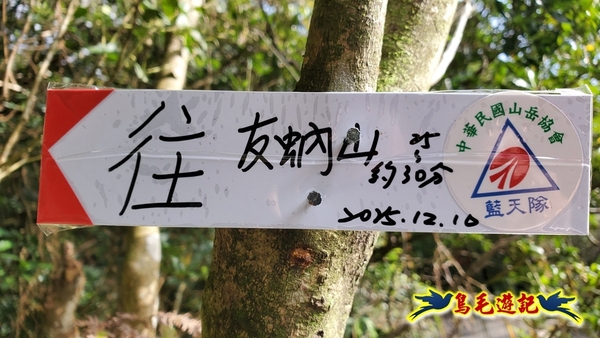 往 友蚋山 約25~30分
2025.12.10
中華民國山岳協會
藍天隊
鳥毛遊記